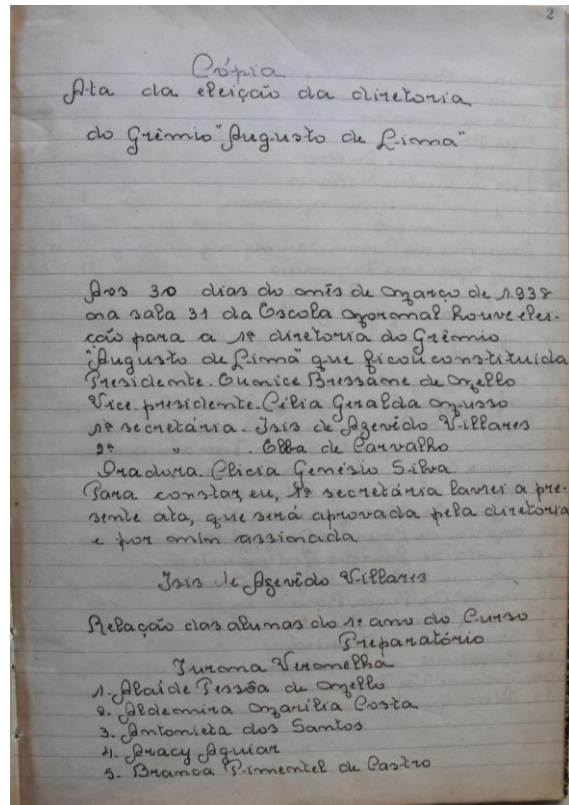 2
Cópia
Ata da eleição da diretoria
do Grêmio "Augusto de Lima"
Aos 30 dias do mês de março de 1.938
na sala 31 da Escola Normal houve elei-
ção para a 1ª diretoria do Grêmio
"Augusto de Lima" que ficou constituida
Presidente. Eunice Bressane de Mello
Vice.presidente. Célia Geralda Musso
1ª secretária. Isis de Azevêdo Villares
2ª " . Elba de Carvalho
Oradora. Clicia Genésio Silva
Para constar, eu, 1ª secretária lavrei a pre-
sente ata, que será aprovada pela diretoria
e por mim assinada
Isis de Azevêdo Villares
Relação das alunas do 1º ano do Curso
Preparatório
Turma Vermelha
1. Alaíde Pessôa de Mello
2. Aldemira Marília Costa
3. Antonieta dos Santos
4. Aracy Aguiar
5. Branca Pimentel de Castro